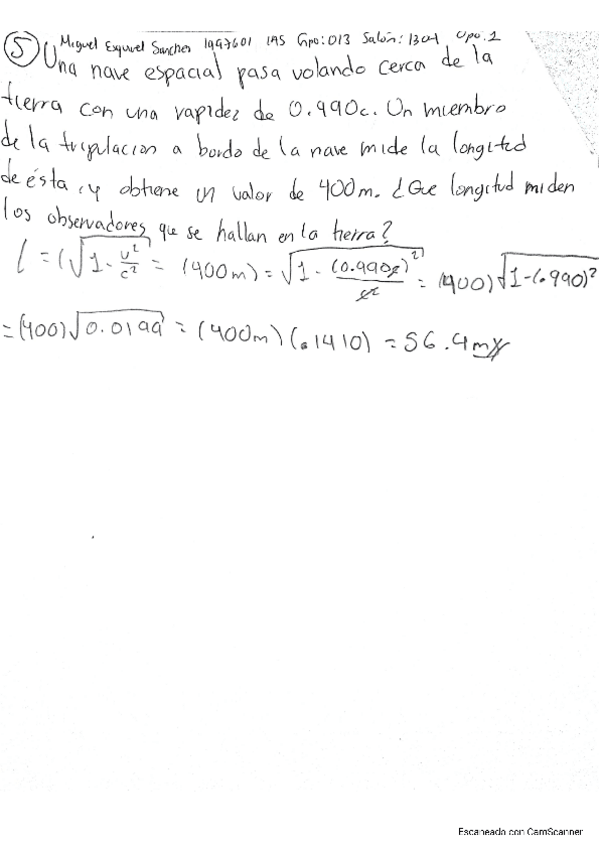 Miguel Esquivel Sanchez 1997601 IAS Gpo: 013 Salón: 1304 Opo: 1
⑤ Una nave espacial pasa volando cerca de la
tierra con una rapidez de 0.990c. Un miembro
de la tripulacion a bordo de la nave mide la longitud
de ésta, y obtiene un valor de 400m. ¿Que longitud miden
los observadores que se hallan en la tierra?
l = (√1 - u²/c² = (400m) = √1 - (0.990c)²/c² = (400)√1-(.990)²
= (400)√0.0199 = (400m)(.1410) = 56.4m
Escaneado con CamScanner